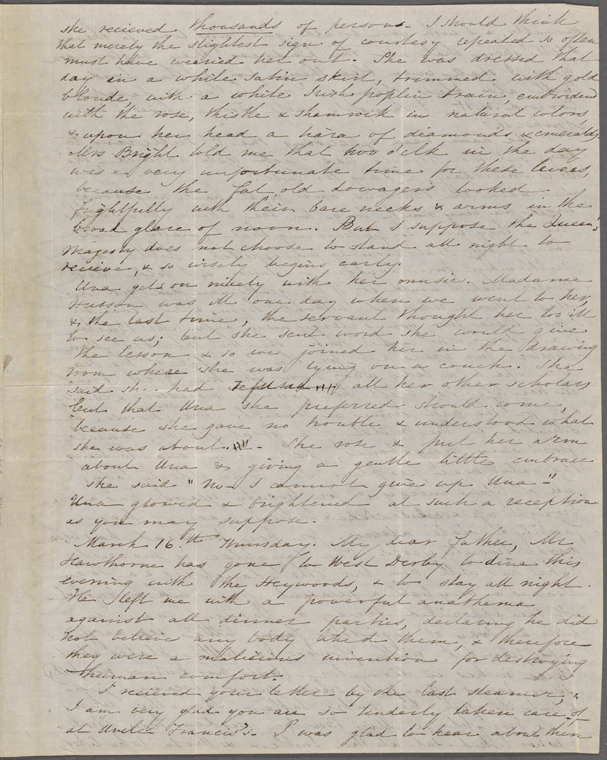 she recieved thousands of persons. I should think
that merely the slightest sign of courtesy repeated so often
must have wearied her out. She was dressed that
day in a white satin skirt, trimmed with gold
blonde, with a white Irish poplin train, embroidered
with the rose, thistle & shamrock in natural colors
& upon her head a tiara of diamonds & emeralds.
Mrs Bright told me that two o'clk in the day
was a very unfortunate time for these levees,
because the fat old dowagers looked
frightfully with their bare necks & arms in the
broad glare of noon. But I suppose the Queen's
Majesty does not choose to stand all night to
recieve, & so wisely begins early.
Una gets on nicely with her music. Madame
Husson was ill one day when we went to her
& the last time, the servant thought her too ill
to see us; but she sent word she would give
the lesson & so we joined her in the drawing
room where she was lying on a couch. She
said she had refused all her other scholars
but that Una she preferred should come,
because she gave no trouble & understood what
she was about. She rose & put her arm
about Una & giving a gentle little embrace
she said "No— I cannot give up Una—"
Una glowed & brightened at such a reception
as you may suppose.
March 16th Thursday. My dear father, Mr
Hawthorne has gone to West Derby to dine this
evening with the Heywoods, & to stay all night.
He left me with a powerful anathema
against all dinner parties, declaring he did
not believe any body liked them, & therefore
they were a malicious invention for destroying
human comfort.
I recieved your letter by the last steamer, &
I am very glad you are so tenderly taken care of
at Francis's. I was glad to hear about them